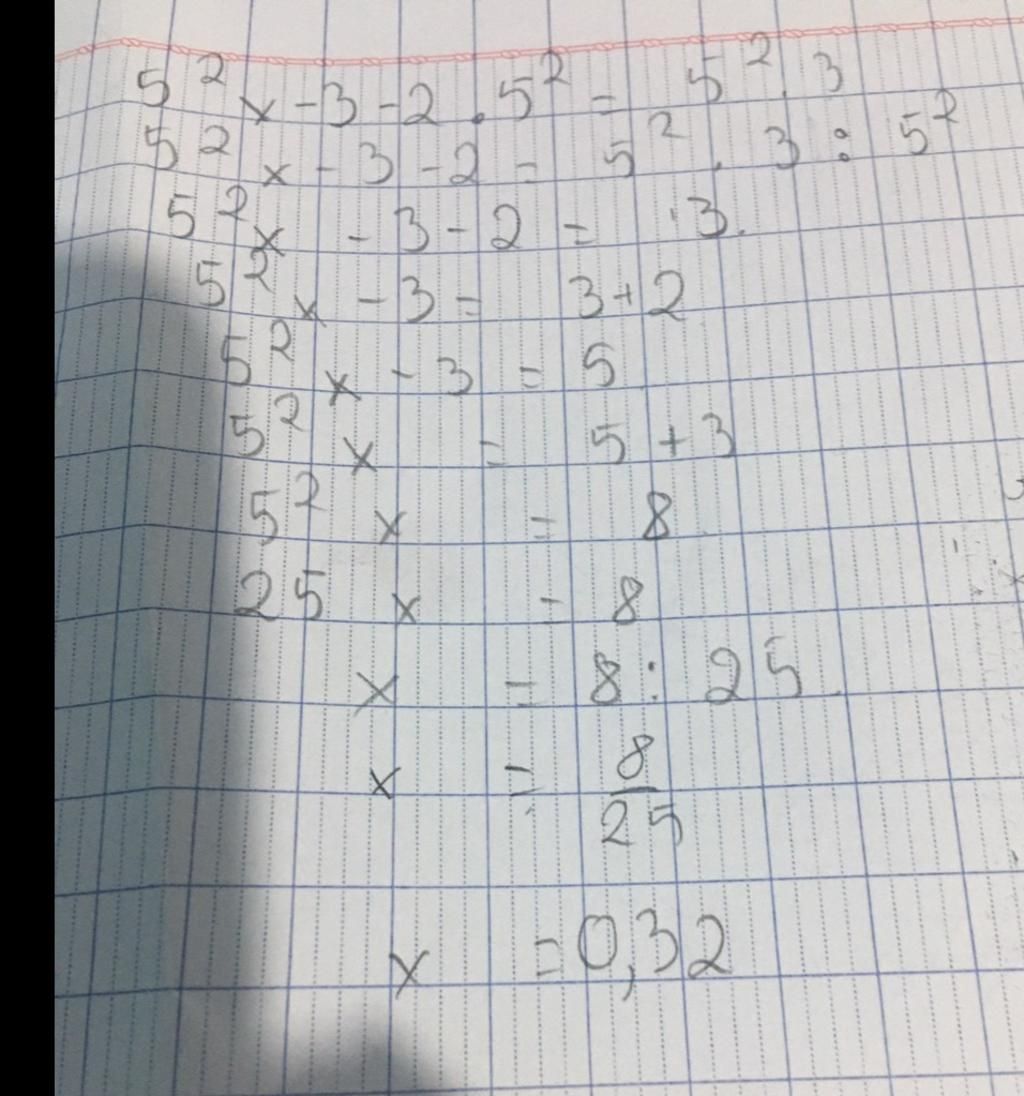 5² x - 3 - 2 . 5² = 5² . 3
5² x - 3 - 2 = 5² . 3 : 5²
5² x - 3 - 2 = 3.
5² x - 3 = 3 + 2
5² x - 3 = 5
5² x = 5 + 3
5² x = 8
25 x = 8
x = 8 : 25
x = 8/25
x = 0,32